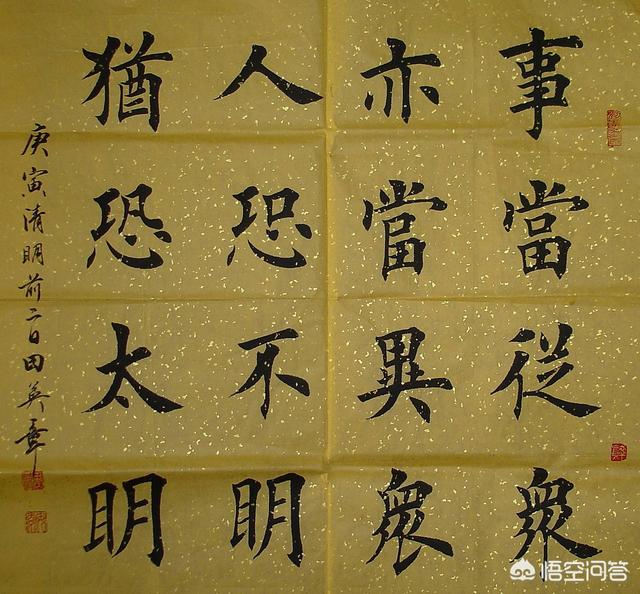 事當從眾
亦當異眾
人恐不明
猶恐太明
庚寅清明前二日田英章
悟空问答